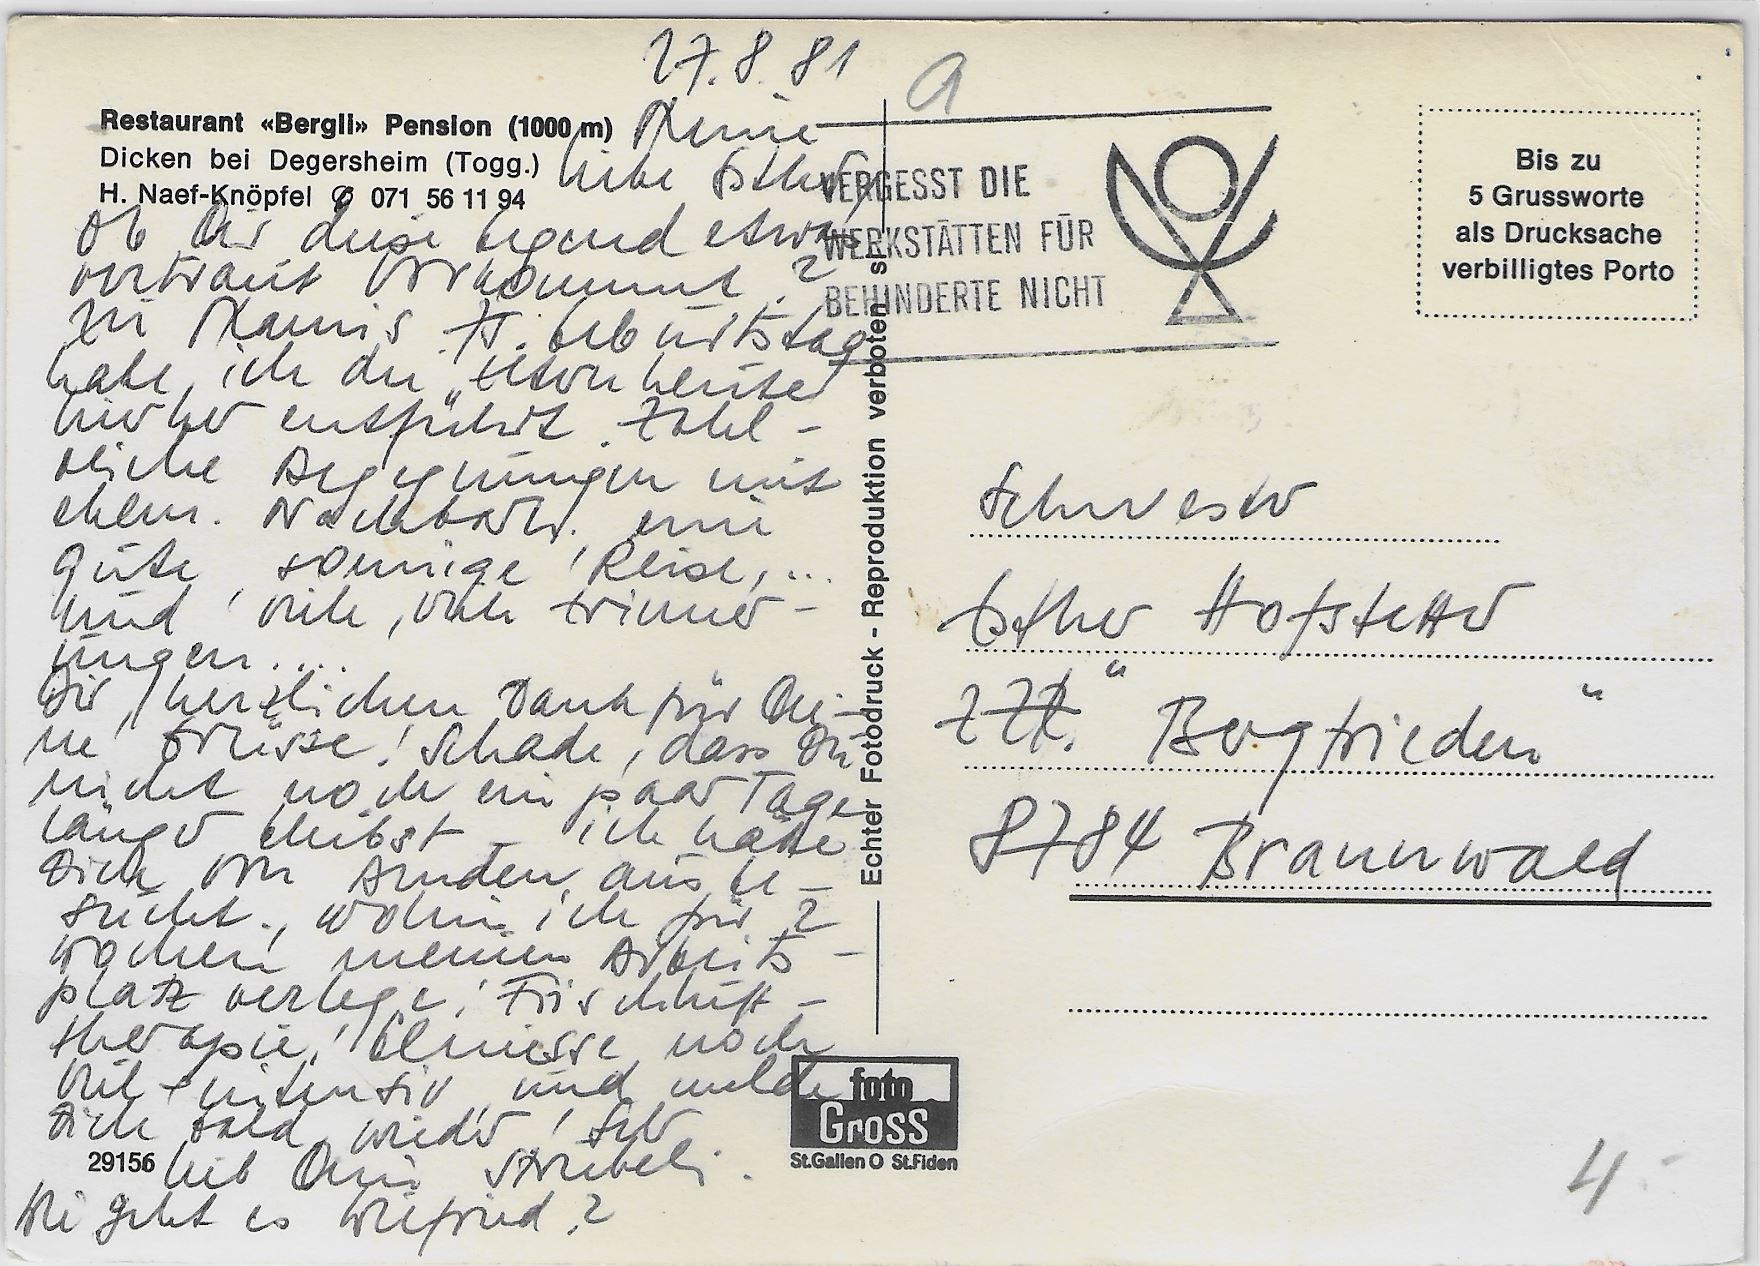 27.8.81
a
Restaurant «Bergli» Pension (1000 m)
Dicken bei Degersheim (Togg.)
H. Naef-Knöpfel ✆ 071 56 11 94
Meine
liebe Esther,
Ob Dir diese Gegend etwas
vertraut vorkommt?
Zu Mamis Geburtstag
habe ich die
hierher entführt. Zahl-
reiche Begegnungen mit
ehem. Nachbarn, eine
gute, sonnige Reise, ...
und viele, viele Erinner-
ungen....
Dir herzlichen Dank für Dei-
ne Grüsse! Schade, dass Du
nicht noch ein paar Tage
länger bleibst – ich hätte
Dich von Amden aus be-
sucht, wohin ich für 2
Wochen meinen Arbeits-
platz verlege! Frischluft-
therapie! Geniesse noch
viel + intensiv und melde
Dich bald wieder! Sei
lieb Dein Strubeli.
Wie geht es Wilfried?
29156
VERGESST DIE
WERKSTÄTTEN FÜR
BEHINDERTE NICHT
Bis zu
5 Grussworte
als Drucksache
verbilligtes Porto
Echter Fotodruck - Reproduktion verboten
Schwester
Esther Hofstetter
zZt. "Bergfrieden"
8784 Braunwald
foto
Gross
St.Gallen O St.Fiden
4.-